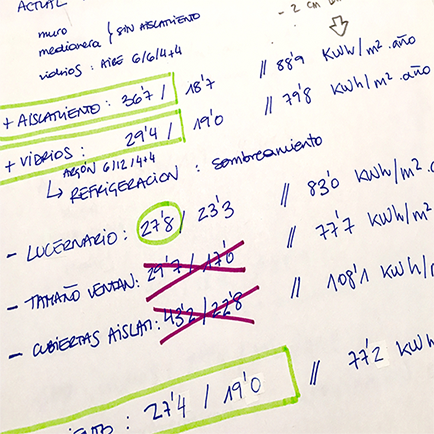 muro
medianera } SIN AISLAMIENTO
- 2 cm
vidrios : AIRE 6/6/4+4
+ AISLAMIENTO : 36'7 / 18'7 // 88'9 KWh/m² . año
+ VIDRIOS : 29'4 / 19'0 // 79'8 KWh/m² . año
ARGÓN 6/12/4+4
↳ REFRIGERACION : sombreamiento
- LUCERNARIO : 27'8 / 23'3 // 83'0 KWh/m².
- TAMAÑO VENTAN: 29'7 / 17'0 // 77'7 KWh/m².
- CUBIERTAS AISLAT: 43'2 / 22'8 // 108'1 KWh/m
27'4 / 19'0 // 77'2 KWh